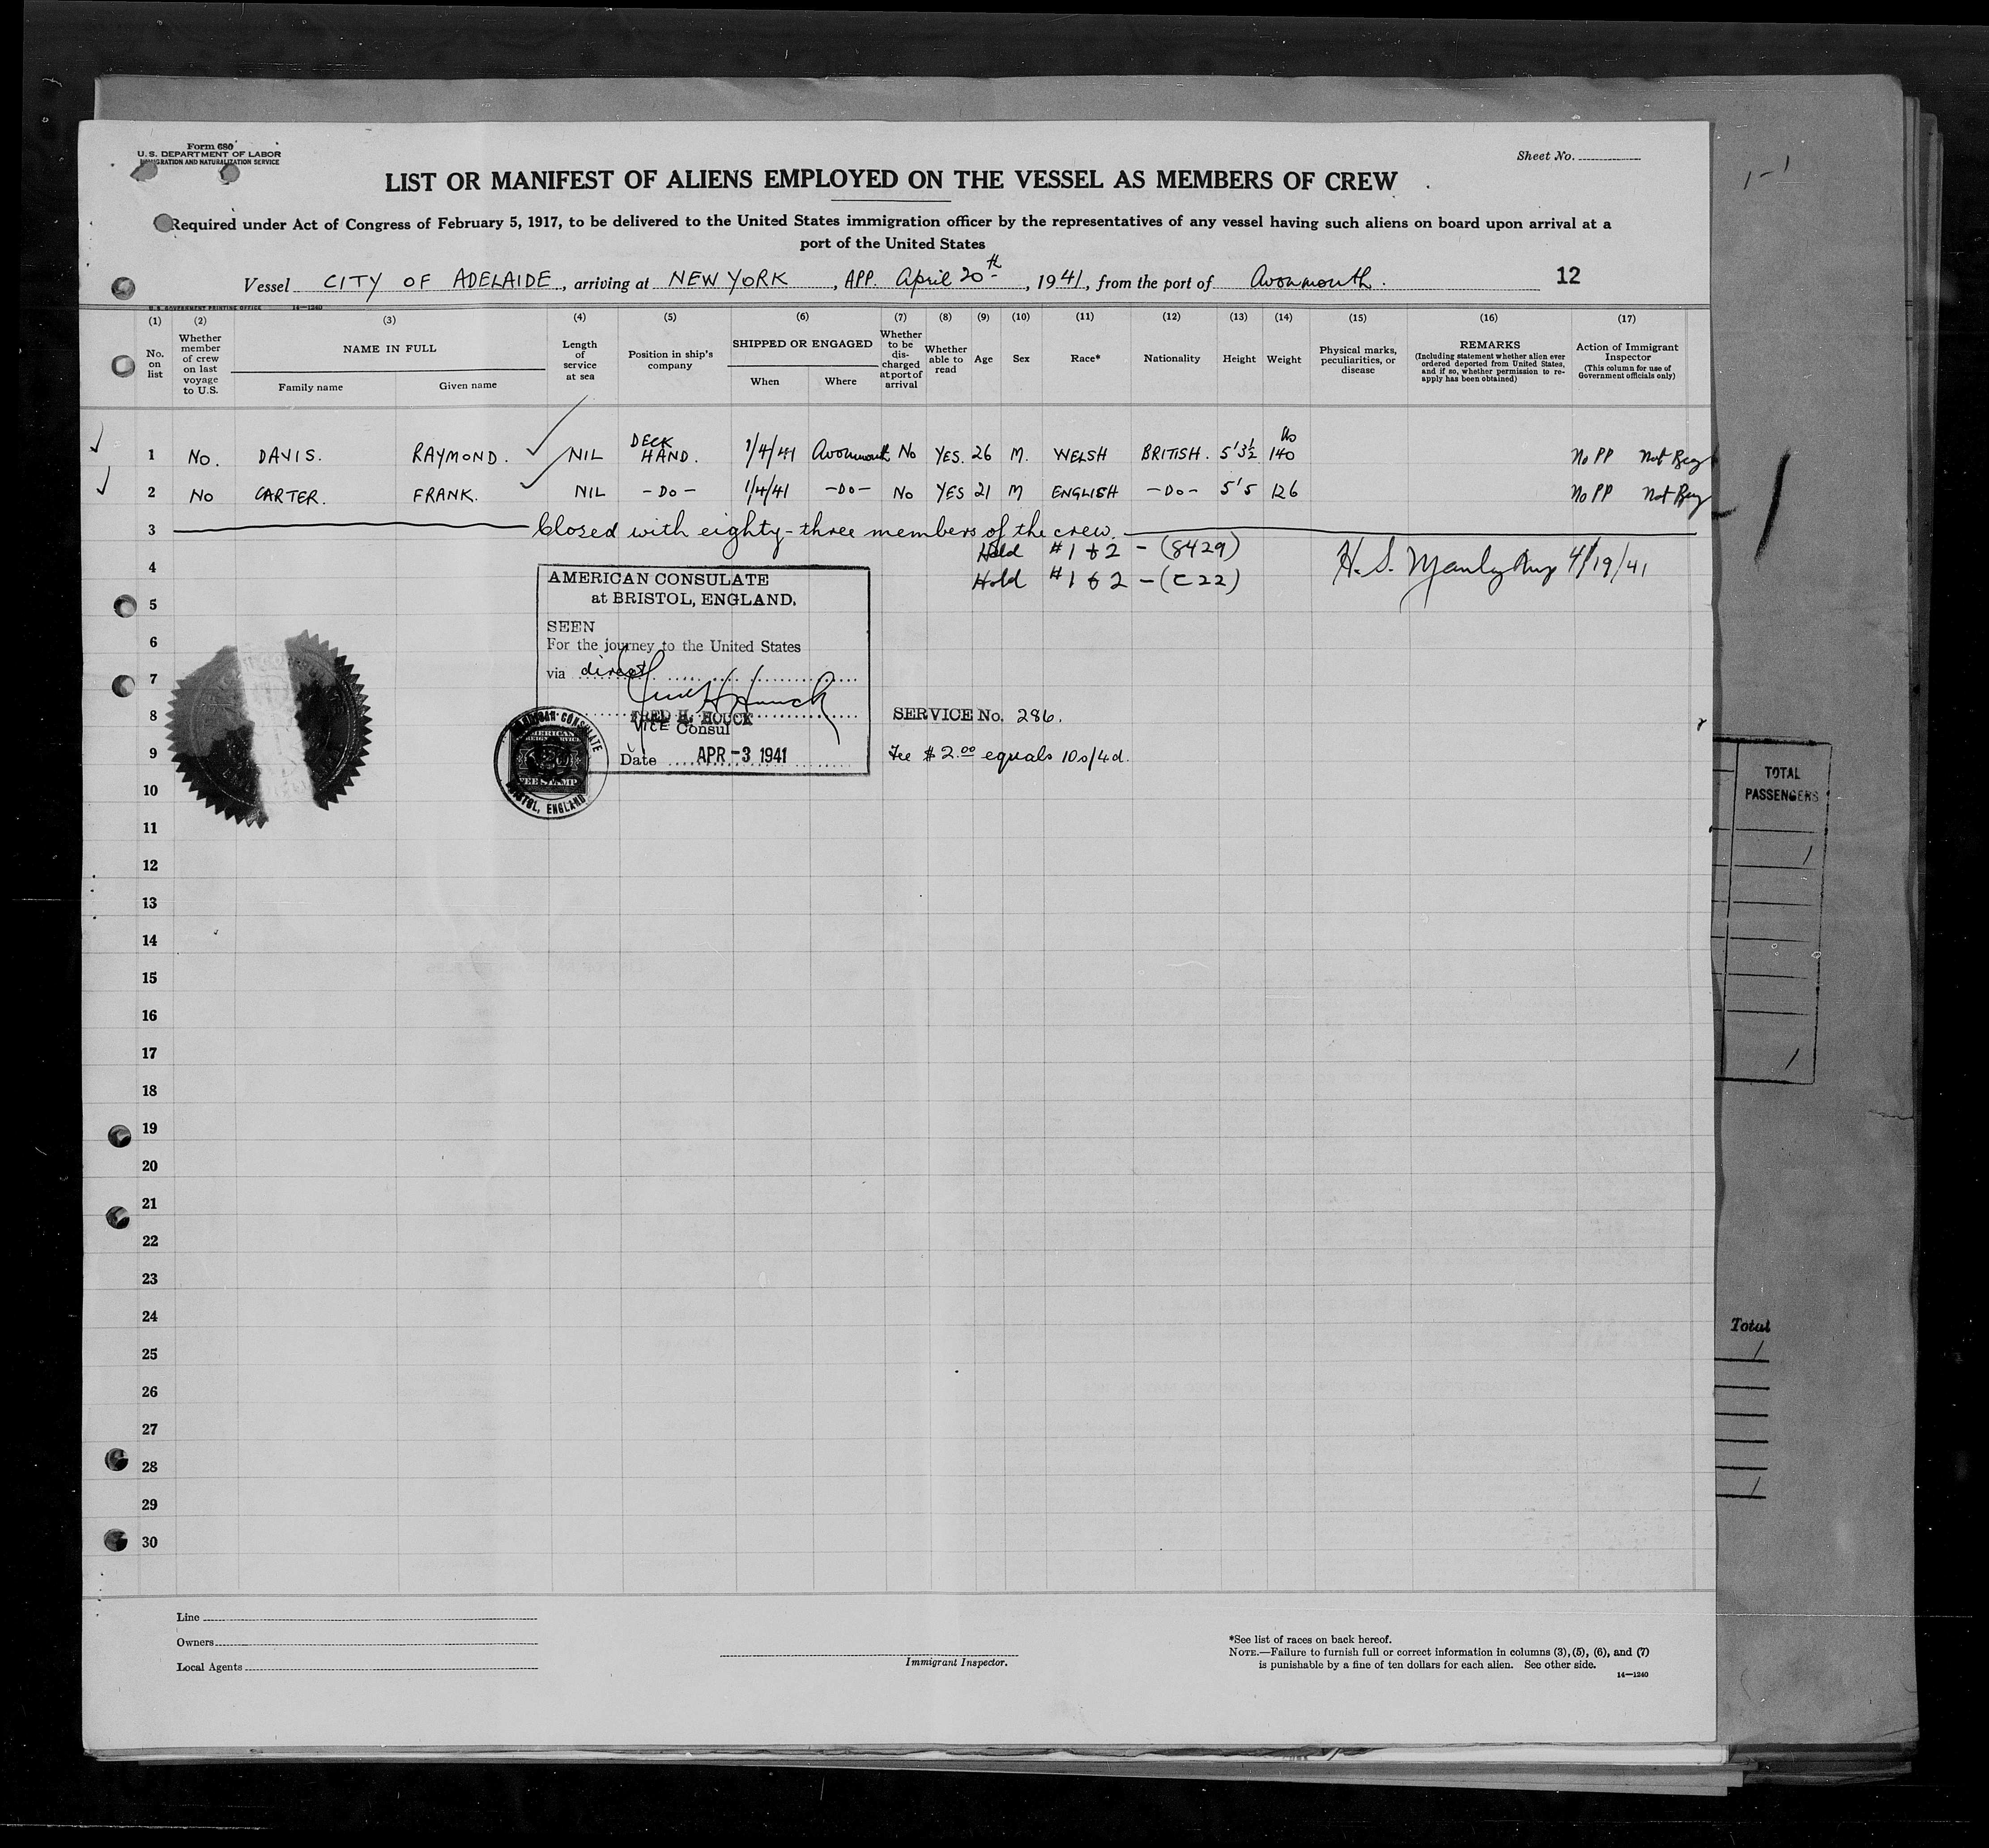 Form 680
U. S. DEPARTMENT OF LABOR
IMMIGRATION AND NATURALIZATION SERVICE
Sheet No.
LIST OR MANIFEST OF ALIENS EMPLOYED ON THE VESSEL AS MEMBERS OF CREW
Required under Act of Congress of February 5, 1917, to be delivered to the United States immigration officer by the representatives of any vessel having such aliens on board upon arrival at a
port of the United States
Vessel CITY OF ADELAIDE, arriving at NEW YORK, APP. April 20th, 1941, from the port of Avonmouth. 12
U. S. GOVERNMENT PRINTING OFFICE 14—1240
(1) (2) (3) (4) (5) (6) (7) (8) (9) (10) (11) (12) (13) (14) (15) (16) (17)
No. on list
Whether member of crew on last voyage to U.S.
NAME IN FULL
Family name Given name
Length of service at sea
Position in ship's company
SHIPPED OR ENGAGED
When Where
Whether to be discharged at port of arrival
Whether able to read
Age
Sex
Race*
Nationality
Height
Weight
Physical marks, peculiarities, or disease
REMARKS
(Including statement whether alien ever ordered deported from United States, and if so, whether permission to reapply has been obtained)
Action of Immigrant Inspector
(This column for use of Government officials only)
1 No. DAVIS. RAYMOND. NIL DECK HAND. 1/4/41 Avonmouth No YES. 26 M. WELSH BRITISH. 5'3½ 140 No PP Not Beg
2 No CARTER. FRANK. NIL -DO- 1/4/41 -DO- No YES 21 M ENGLISH -DO- 5'5 126 No PP Not Beg
3 Closed with eighty-three members of the crew.
Hold #1 & 2 - (8429)
4 Hold #1 & 2 - (C22) H. S. Manly 4/19/41
AMERICAN CONSULATE
at BRISTOL, ENGLAND.
5
SEEN
6 For the journey to the United States
7 via direct
8 FRED H. HOUCK SERVICE No. 286.
VICE Consul
9 Date APR -3 1941 Fee $2.00 equals 10s/4d.
AMERICAN CONSULATE
BRISTOL, ENGLAND
AMERICAN
FOREIGN SERVICE
FEE STAMP
10
11
12
13
14
15
16
17
18
19
20
21
22
23
24
25
26
27
28
29
30
Line
Owners
Local Agents
Immigrant Inspector.
*See list of races on back hereof.
NOTE.—Failure to furnish full or correct information in columns (3), (5), (6), and (7)
is punishable by a fine of ten dollars for each alien. See other side.
14—1240
1-1
TOTAL
PASSENGERS
1
1
Total
1
1